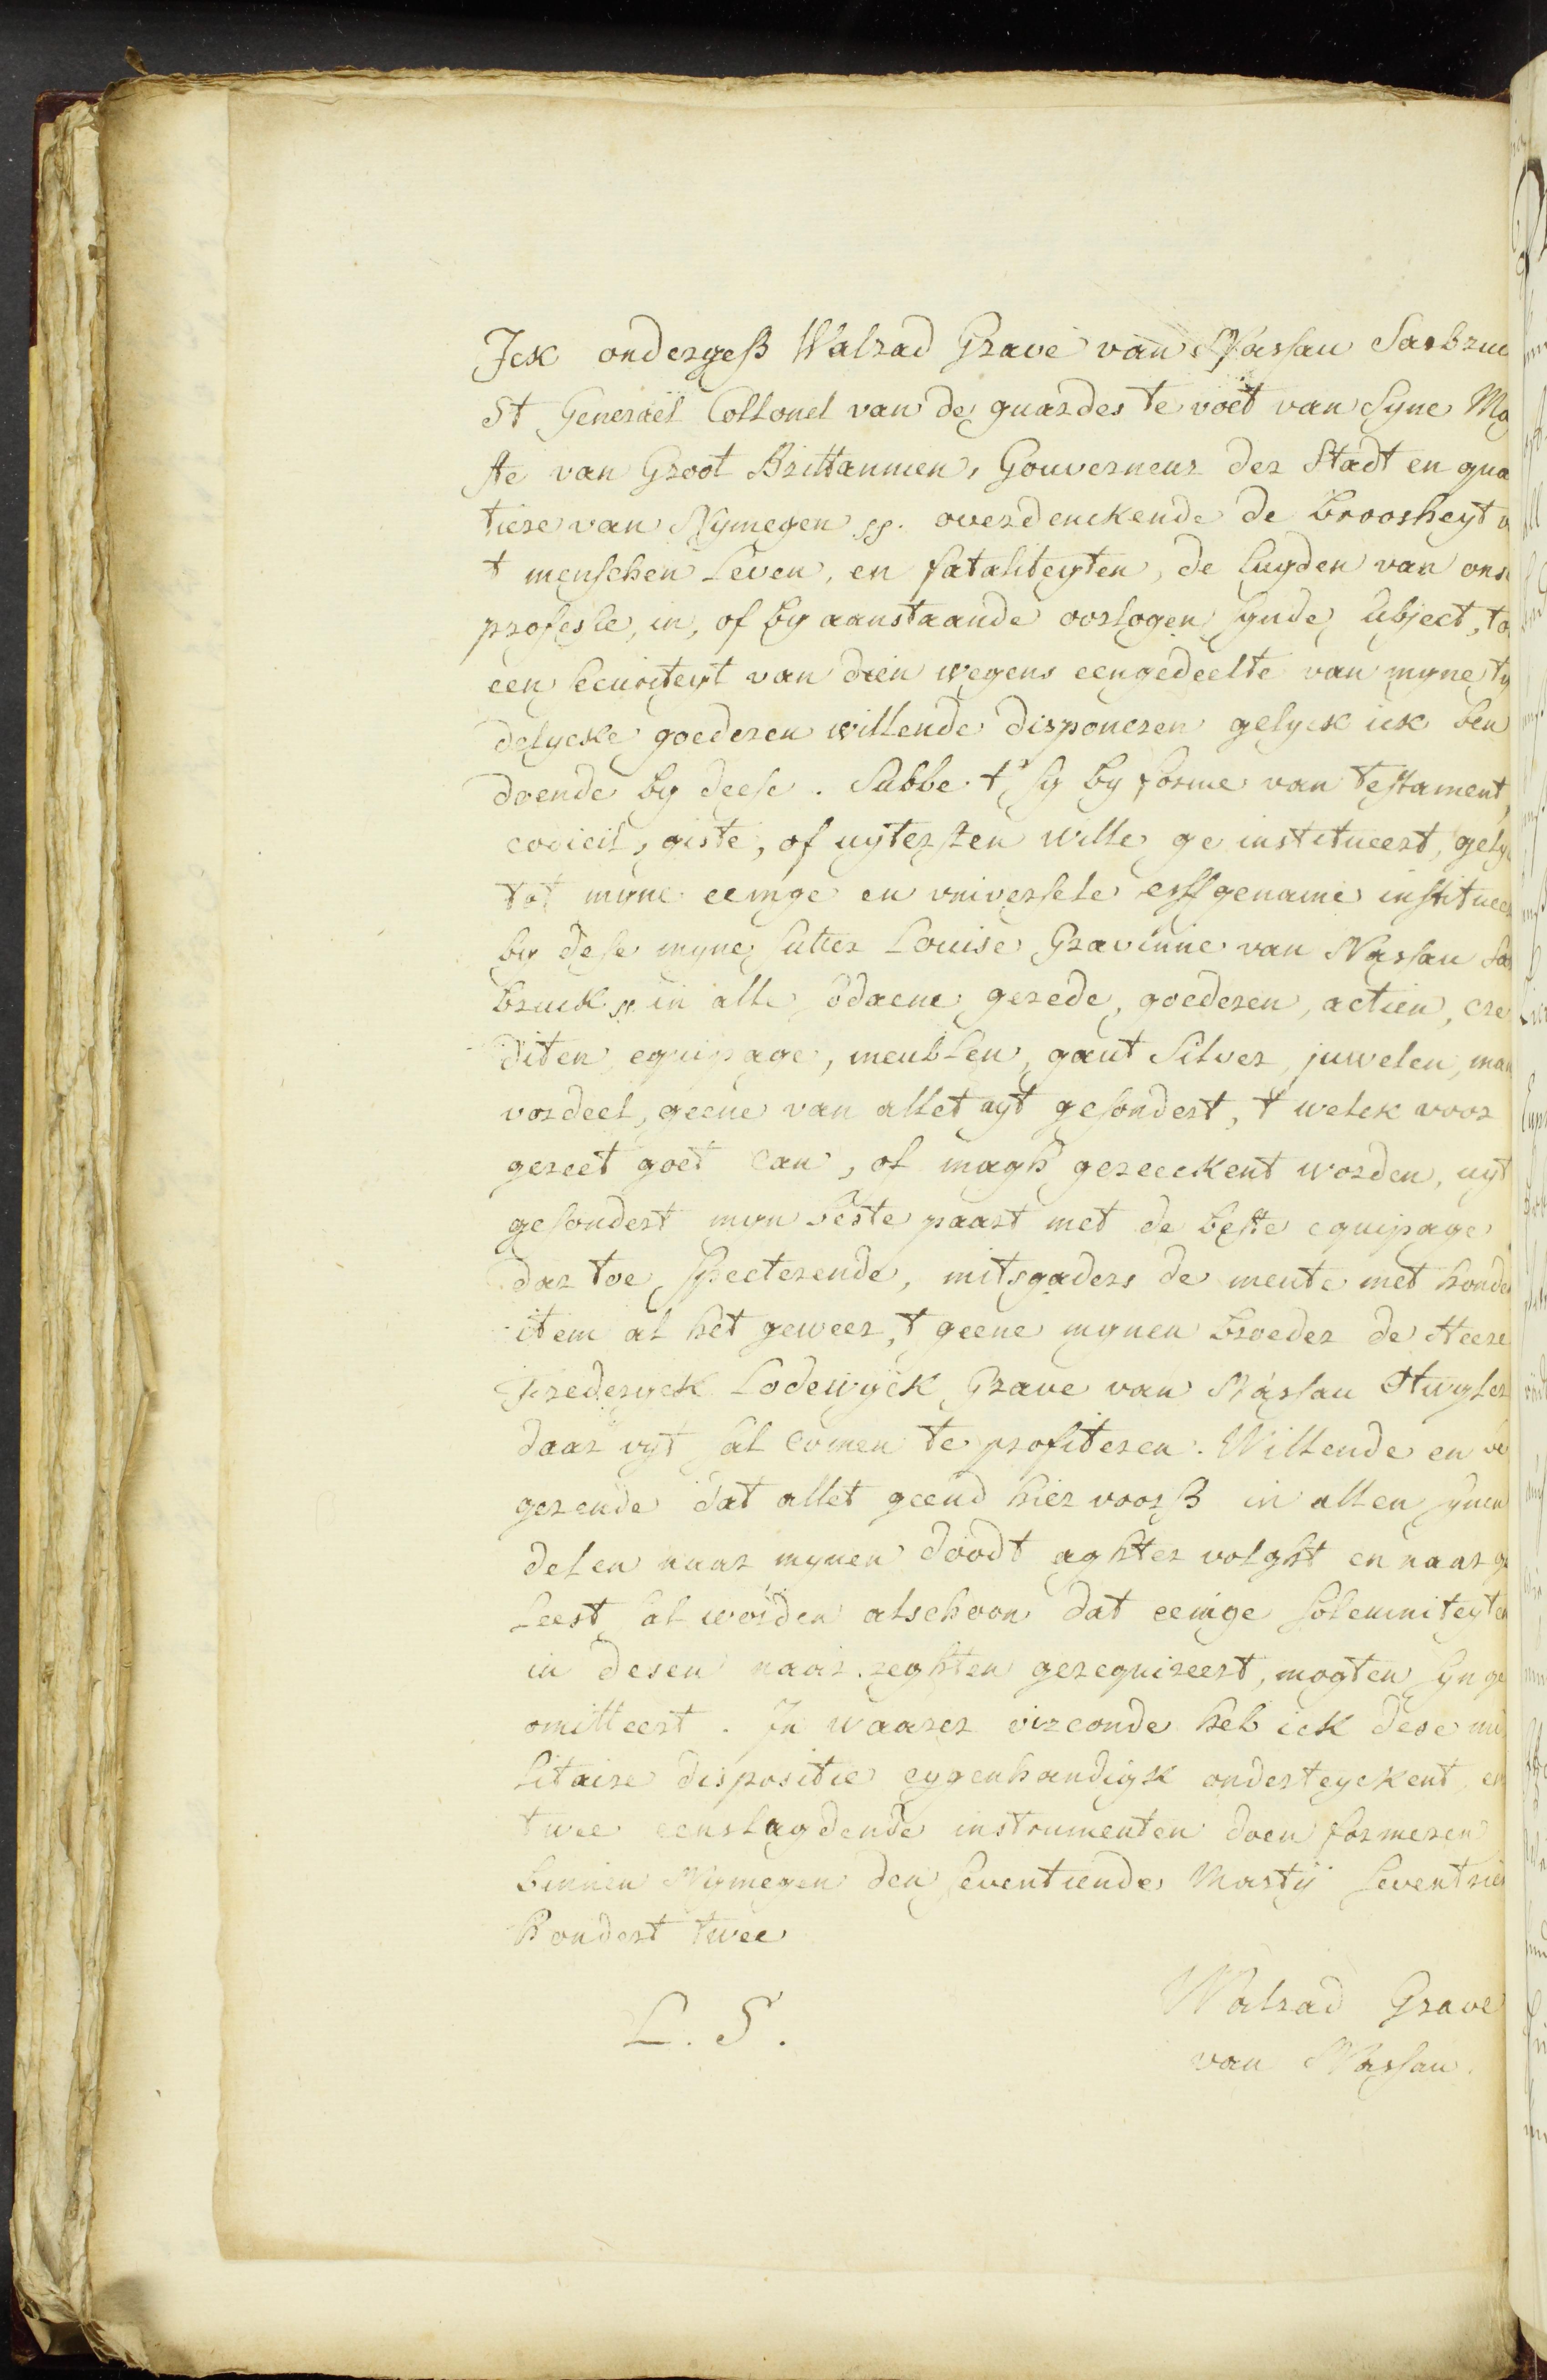 Ick ondergeß Walrad Grave van Nassau Sarbruc
Lt Generael Collonel van de guardes te voet van Syne Ma
ste van Groot Brittannien, Gouverneur der Stadt en qua
tiere van Nymegen pp. overdenckende de broosheyt v
t menschen Leven, en fataliteyten, de luyden van onse
professie, in, of by aanstaande oorlogen synde subject, to
een securiteyt van dien wegens een gedeelte van myne ty
delycke goederen willende disponeren gelyck ick ben
doende by deese. Hebbe t sy by forme van testament,
codicil, gifte, of uytersten wille geinstitueert, gely
tot myne eenige en universele erffgename institueer
by dese myne suster Louise Gravinne van Nassau Sar
bruck pp in alle gerede goederen, actien, cre
diten equipage, meublen, gout Silver, juwelen, man
vordeel, geene van allet uyt gesondert, t welck voor
gereet goet can, of magh gereeckent worden, uyt
gesondert myn beste paart met de beste equipage
dar toe specterende, mitsgaders de meute met honde
item al het geweer, t geene mynen broeder de Heere
Frederyck Lodewyck Grave van Nassau Otwyler
daar uyt sal comen te profiteren. Willende en be
gerende dat allet geend hier voorß in allen synen
delen naar mynen doodt aghter volght en naar ge
leest sal worden alschoon dat eenige solemniteyten
in desen naar reghten gerequireert, mogten syn ge
omitteert. In waarer oirconde heb ick dese mi
litaire dispositie eygenhandigh onderteyckent en
twee eensluydende instrumenten doen formeren
binnen Nymegen den seventiende Martij seventien
hondert twee
L. S.
Walrad Grave
van Nassau.